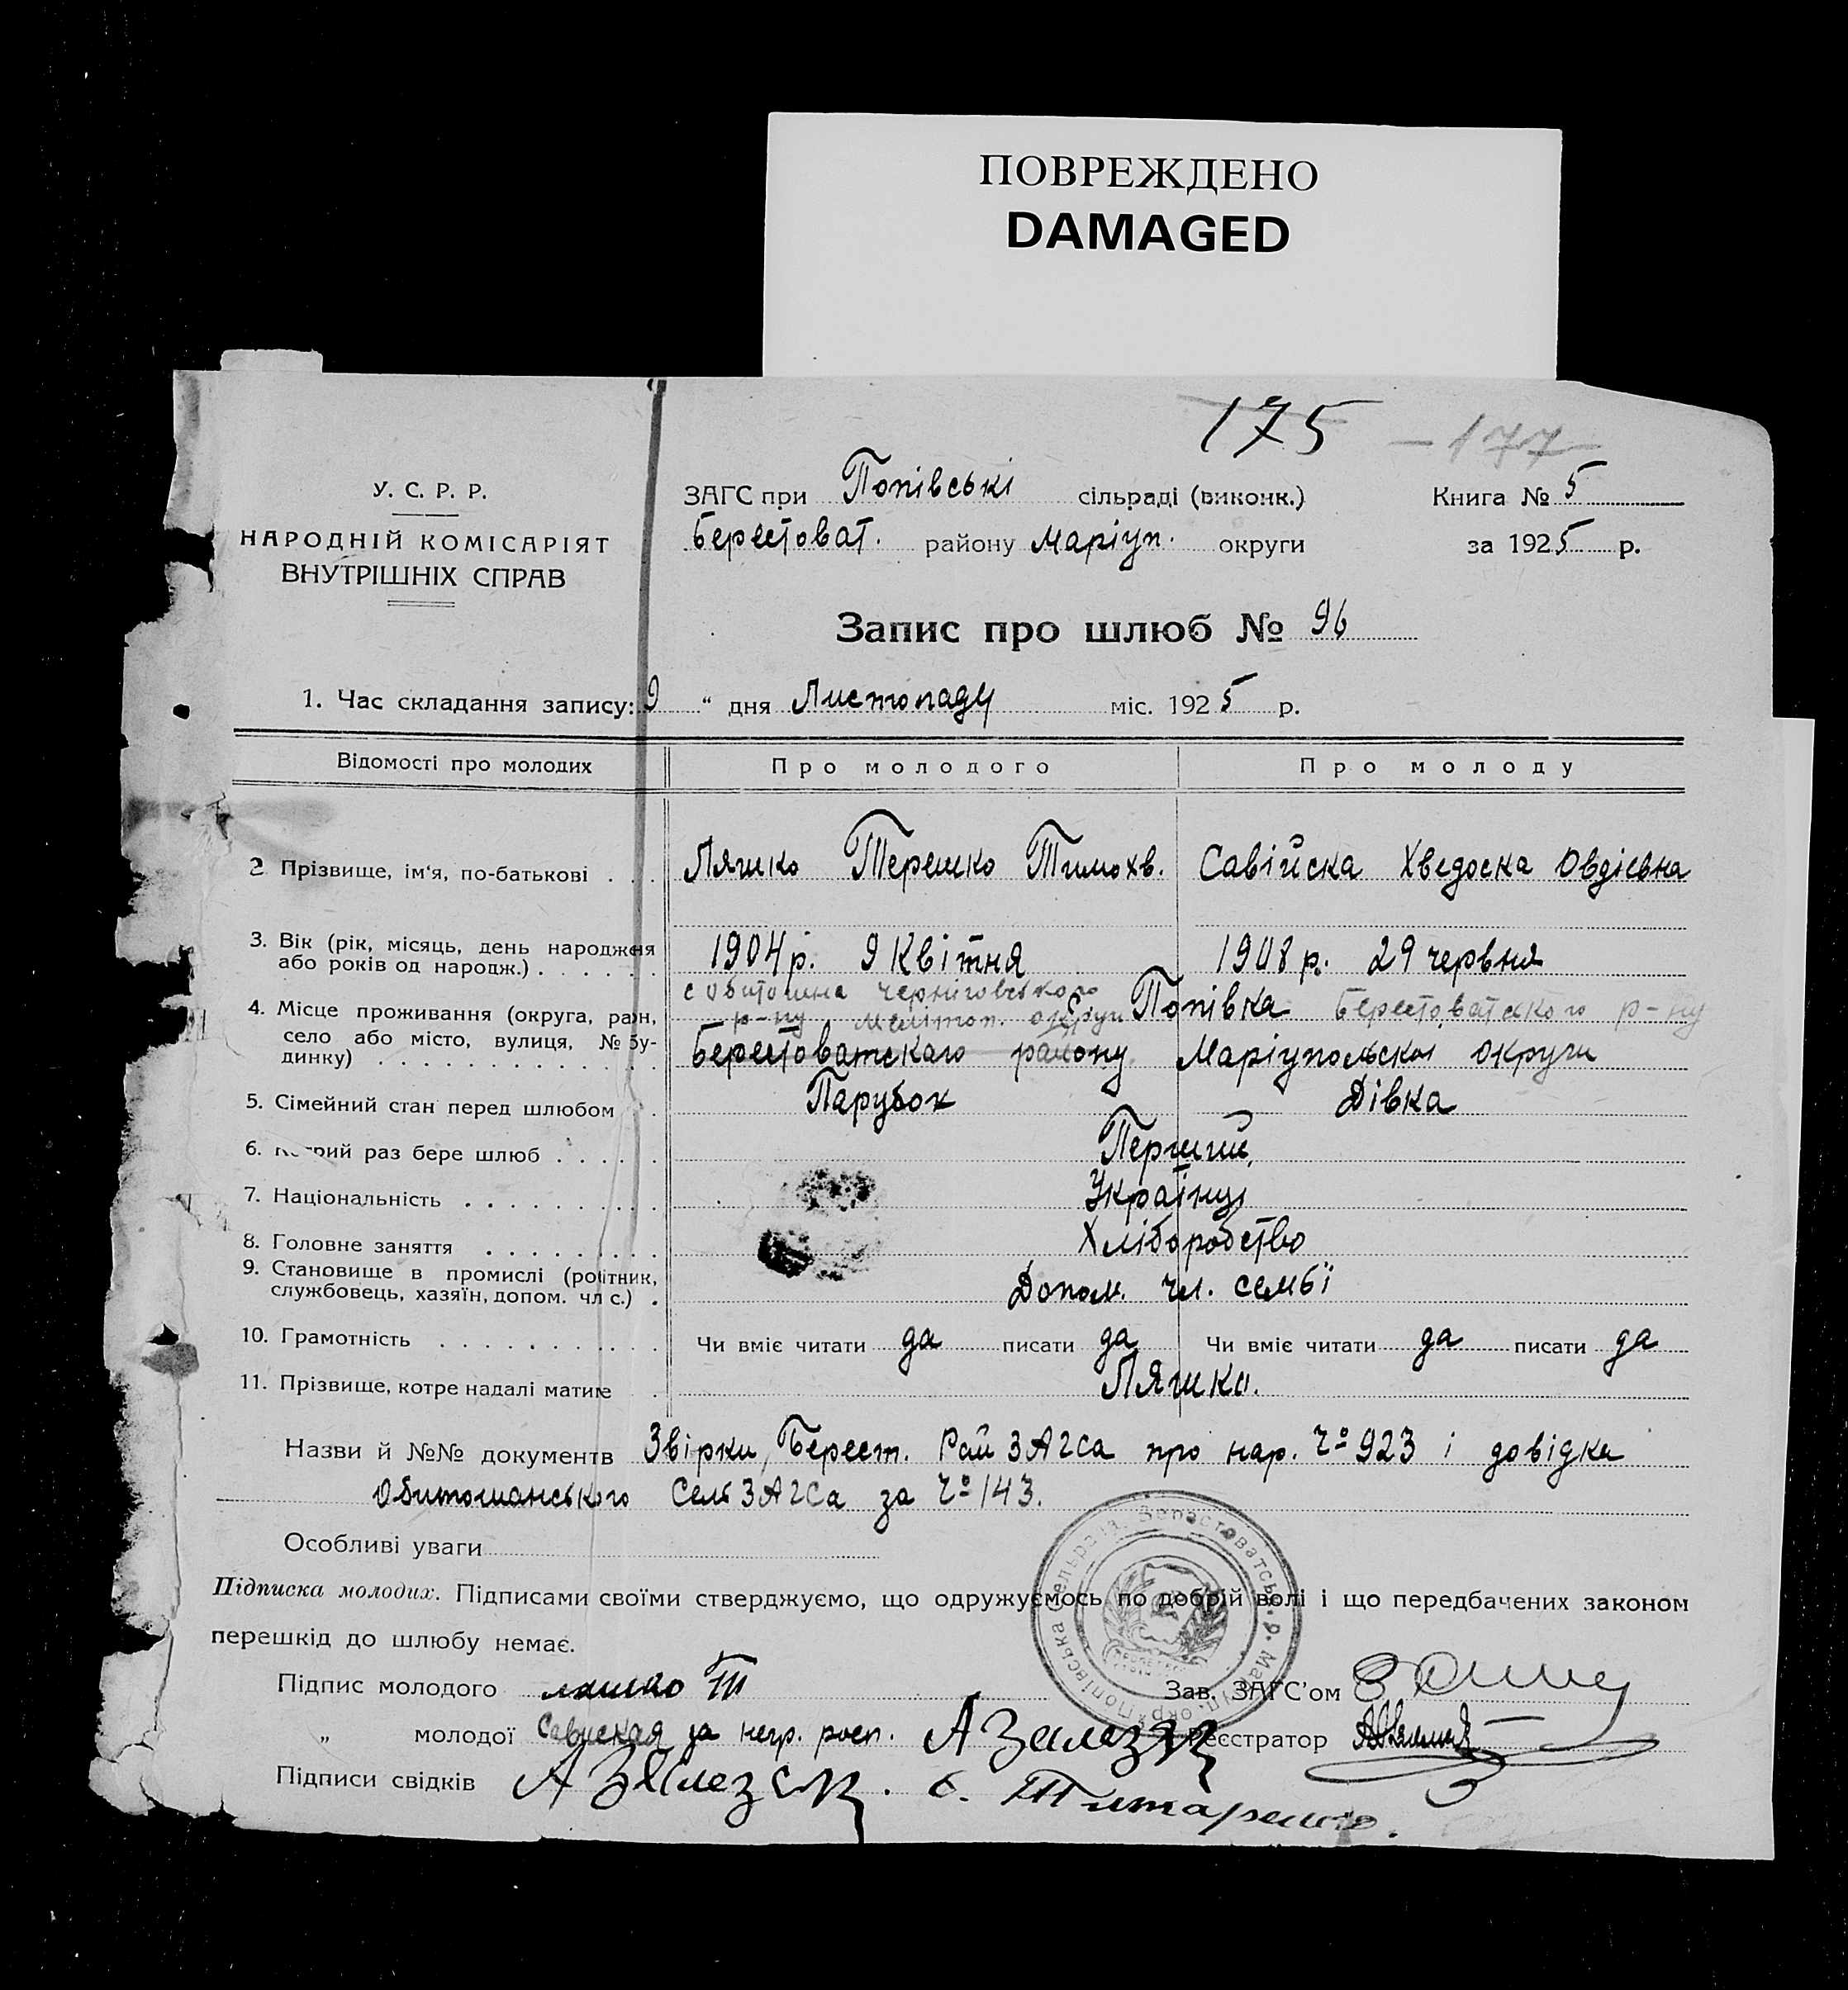 ПОВРЕЖДЕНО
DAMAGED
175 — 177
У. С. Р. Р.
НАРОДНІЙ КОМІСАРІЯТ
ВНУТРІШНІХ СПРАВ
ЗАГС при Попівські сільраді (виконк.) Книга № 5
Берестоват. району Маріуп. округи за 1925 р.
Запис про шлюб № 96
1. Час складання запису: 9 “ дня Листопаду міс. 1925 р.
Відомості про молодих Про молодого Про молоду
2. Прізвище, ім‘я, по-батькові . . . Ляшко Терешко Тимохв. Савійска Хведоска Овдієвна
3. Вік (рік, місяць, день народження 1904 р. 9 Квітня 1908 р. 29 червня
або років од народж.) . . . . . .
с Обитошна Черніговського
4. Місце проживання (округа, район, р-ну Меліто­п. округи с. Попівка Берестоватского р-ну
село або місто, вулиця, № бу- Берестоватскаго району Маріупольскоі округи
динку) . . . . . . . . . . . . .
5. Сімейний стан перед шлюбом . . Парубок Дівка
6. Котрий раз бере шлюб . . . . . Перший
7. Національність . . . . . . . . . Українці
8. Головне заняття . . . . . . . . Хліборобство
9. Становище в промислі (робітник,
службовець, хазяїн, допом. чл с.) . Допом. чл. сембї
10. Грамотність . . . . . . . . . . Чи вміє читати да писати да Чи вміє читати да писати да
11. Прізвище, котре надалі матиме . Ляшко.
Назви й №№ документв Звірки, Берест. Рай ЗАГСа про нар. Чо 923 і довідка
Обитошанського Сель ЗАГСа за Чо 143.
Особливі уваги
Підписка молодих. Підписами своїми стверджуємо, що одружуємось по добрій волі і що передбачених законом
перешкід до шлюбу немає.
Підпис молодого ляшко Т Зав. ЗАГС’ом
„ молодої Савиская за негр. росп. Реєстратор
Підписи свідків